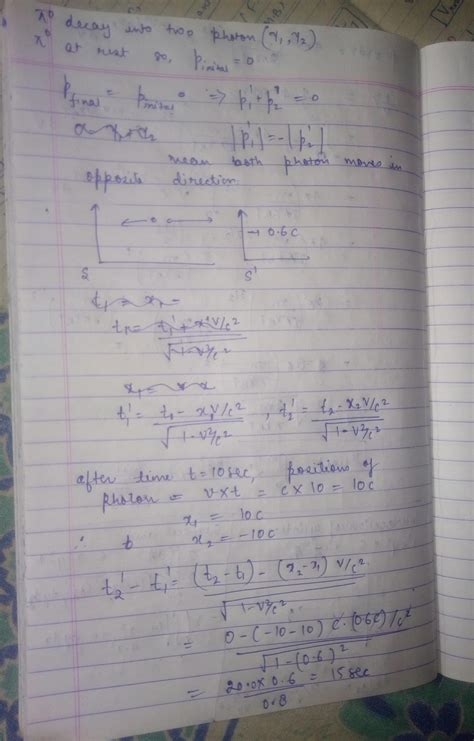 π⁰ decay into two photon (γ₁, γ₂)
π⁰ at rest so, p_initial = 0
p_final = p_initial ⇒ p₁' + p₂' = 0
|p₁'| = -|p₂'|
mean both photon moves in
opposite direction
→ 0.6c
S S'
t₁' = (t₁ - x₁v/c²) / √(1 - v²/c²) , t₂' = (t₂ - x₂v/c²) / √(1 - v²/c²)
after time t = 10 sec, positions of
photon = v×t = c × 10 = 10c
x₁ = 10c
∴ x₂ = -10c
t₂' - t₁' = ((t₂ - t₁) - (x₂ - x₁) v/c²) / √(1 - v²/c²)
= (0 - (-10 - 10) c · (0.6c)/c²) / √(1 - (0.6)²)
= (20.0 × 0.6) / 0.8 = 15 sec